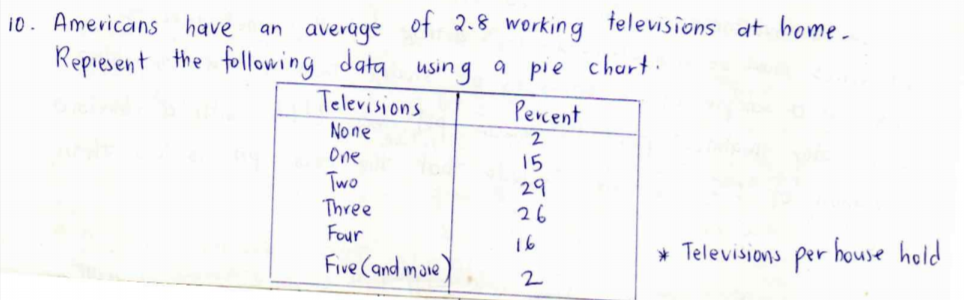 10. Americans have an average of 2.8 working televisions at home.
Represent the following data using a pie chart.
Televisions Percent
None 2
One 15
Two 29
Three 26
Four 16
Five (and more) 2
* Televisions per house hold